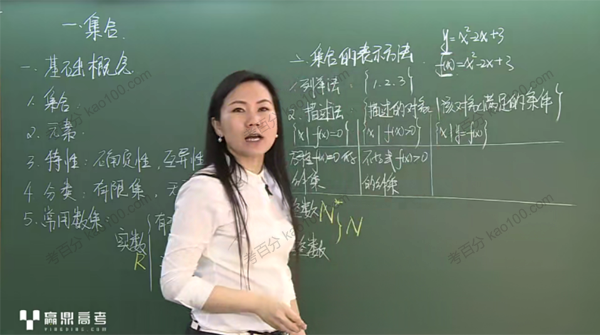 一.集合.
一.基础概念
1.集合
2.元素
3.特性:确定性,互异性
4.分类:有限集,无
5.常用数集:
实数
R
有
二.集合的表示方法.
1.列举法: {1.2.3}
2.描述法 {描述的对象|该对象满足的条件}
{x|f(x)=0} {x|f(x)>0} {x|y=f(x)}
方程f(x)=0的解集
不等式f(x)>0的解集
整数 N* } N
y=x²-2x+3
f(x)=x²-2x+3
赢鼎高考
YINGDING.COM
考百分 kao100.com
考百分 kao100.com
考百分 kao100.com
考百分 kao100.com